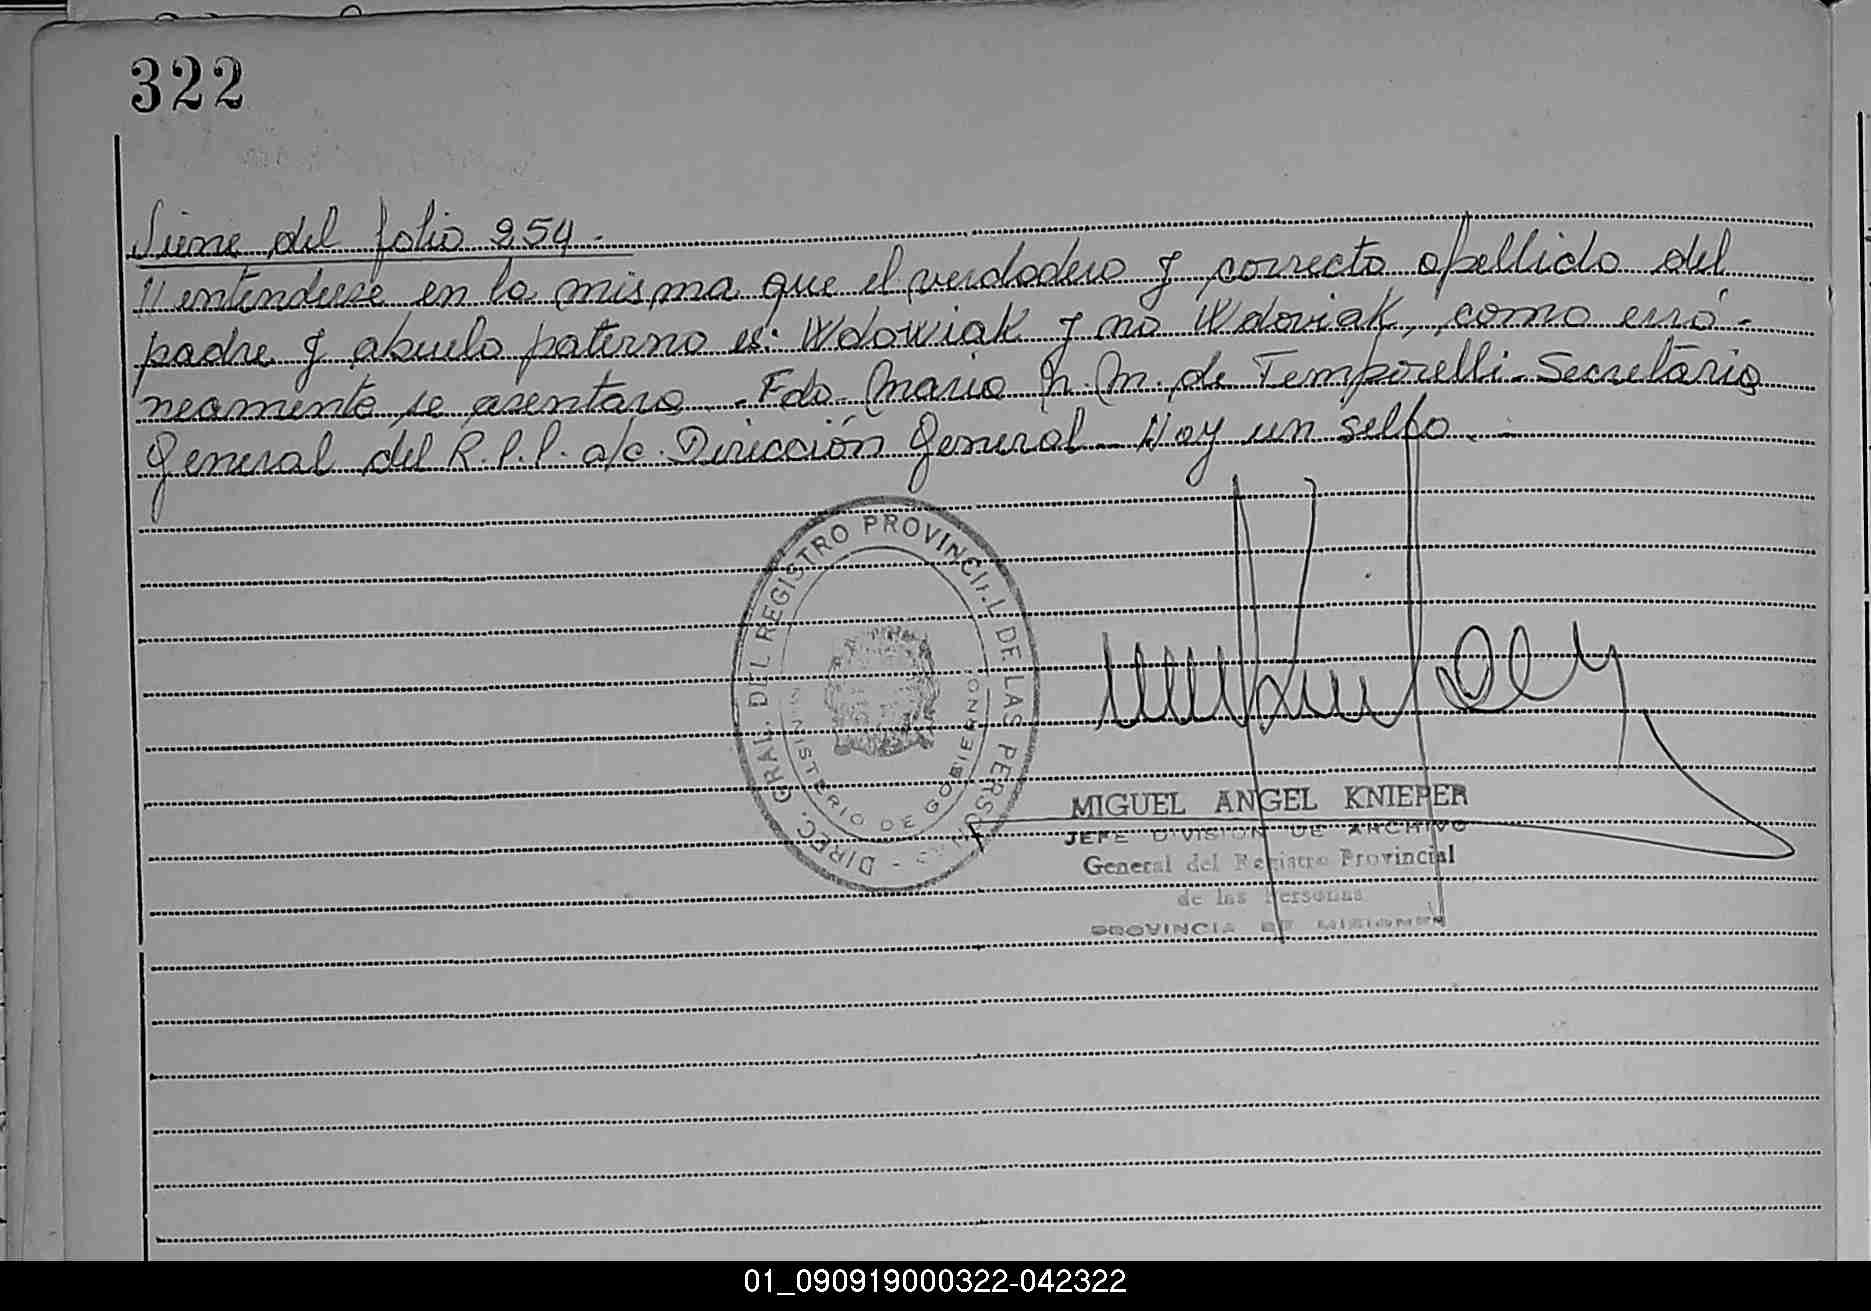 322
Viene del folio 254.
// entenderse en la misma que el verdadero y correcto apellido del
padre y abuelo paterno es: Wdowiak y no Wdoviak, como erró-
neamente se asentara. Fdo. Maria N. M. de Temporelli - Secretaria
General del R.P.P. a/c. Dirección General - Hay un sello.
DIREC. GRAL. DEL REGISTRO PROVINCIAL DE LAS PERSONAS -
MINISTERIO DE GOBIERNO
MIGUEL ANGEL KNIEPER
JEFE DIVISION DE ARCHIVO
General del Registro Provincial
de las Personas
PROVINCIA DE MISIONES
01_090919000322-042322